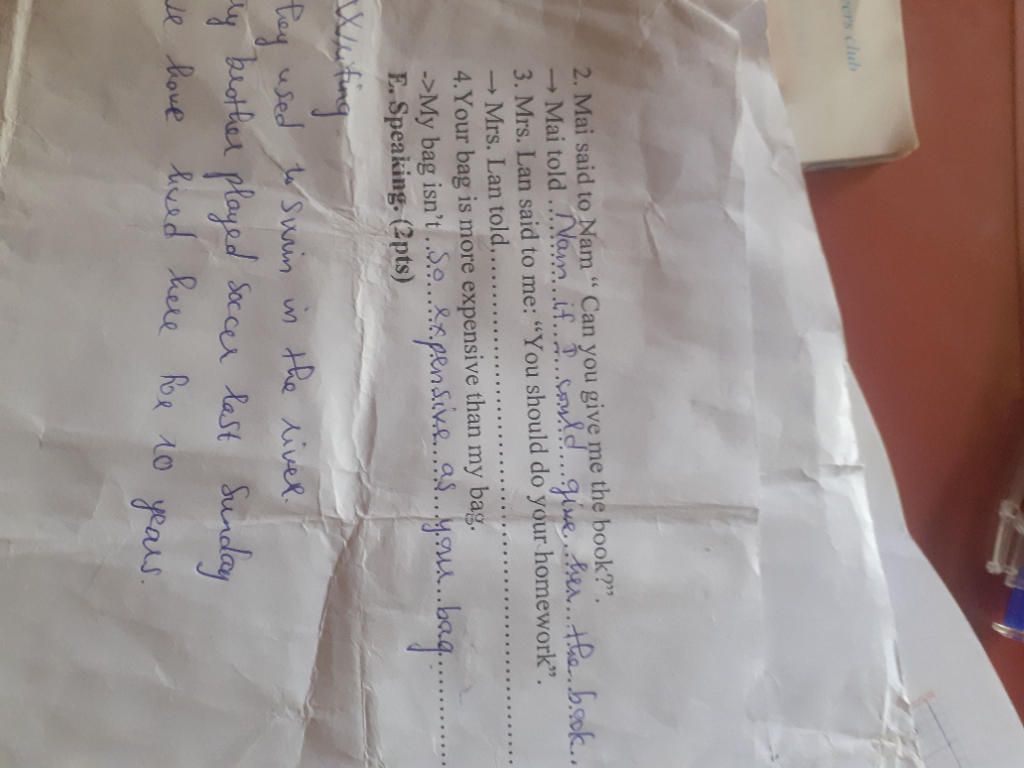 club
2. Mai said to Nam“ Can you give me the book?”.
→ Mai told ....Nam...if...I...could...give...her...the...book...
3. Mrs. Lan said to me: “You should do your homework”.
→ Mrs. Lan told..........................................
4. Your bag is more expensive than my bag.
->My bag isn't ..so expensive...as...your...bag............
E. Speaking. (2pts)
Writing
used to swim in the river.
brother played soccer last Sunday
have lived here for 10 years.